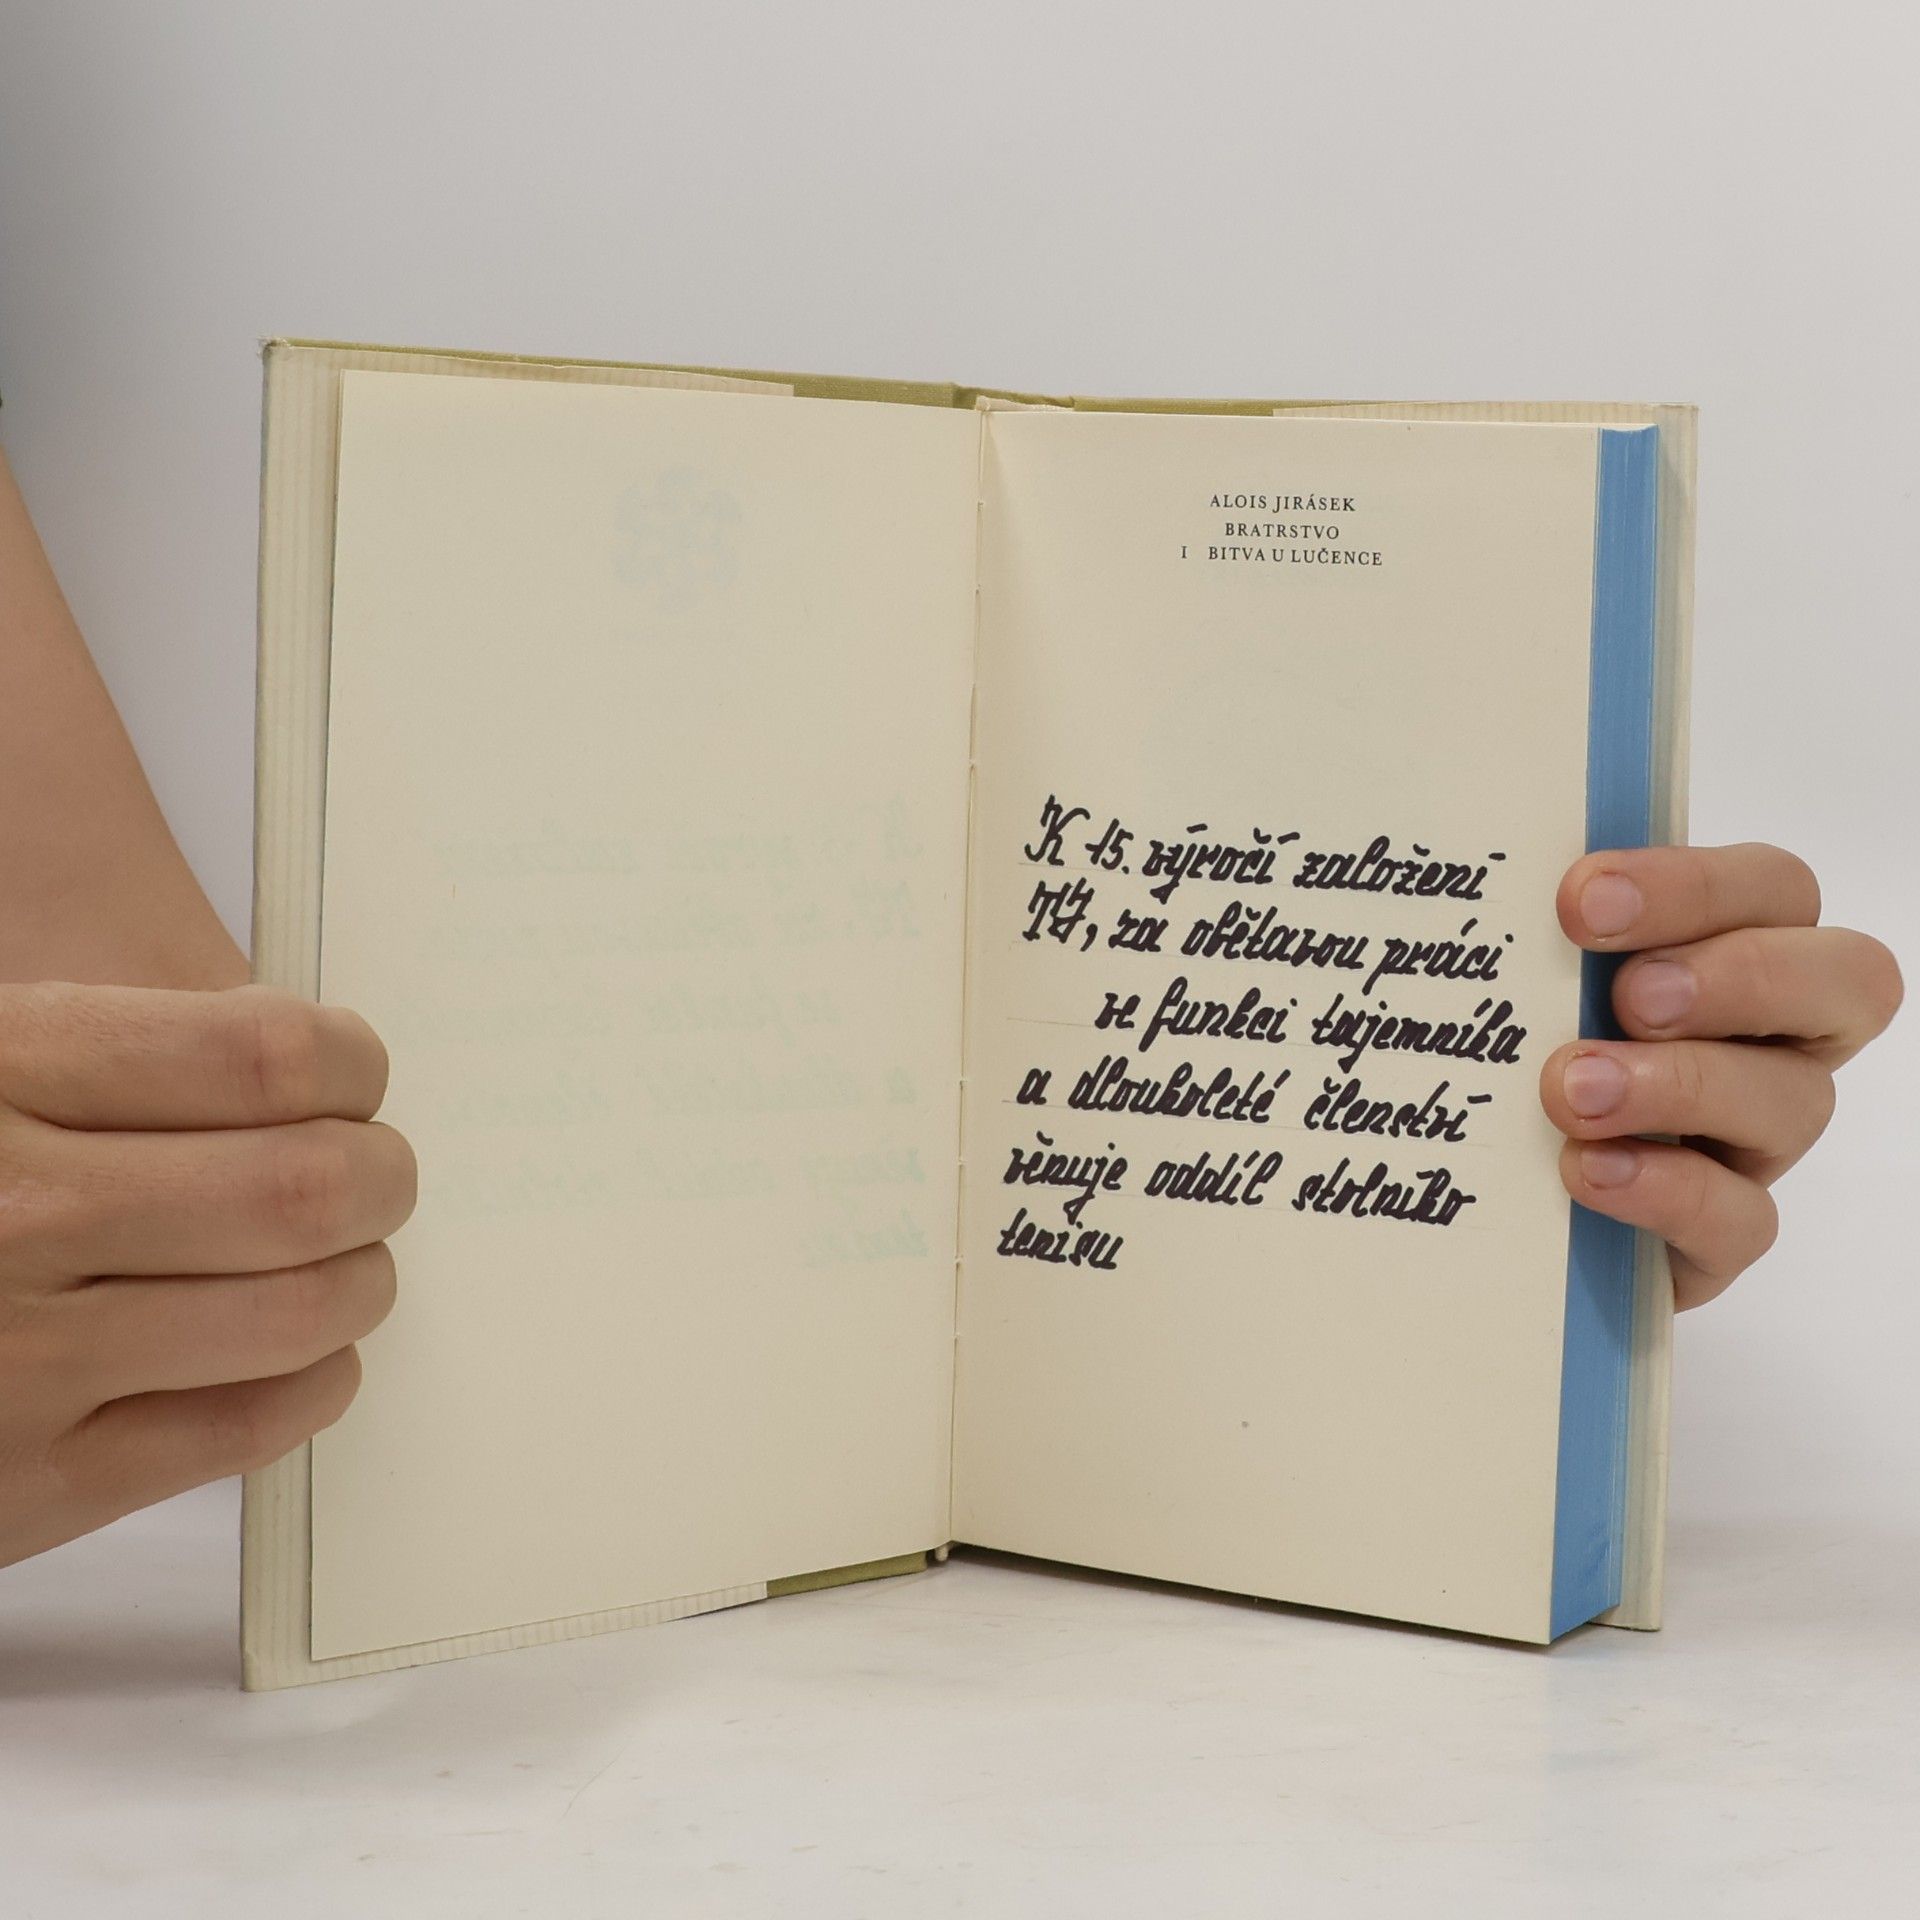 ALOIS JIRÁSEK
BRATRSTVO
I BITVA U LUČENCE
K 15. výročí založení
TJ, za obětavou práci
ve funkci tajemníka
a dlouholeté členství
věnuje oddíl stolního
tenisu